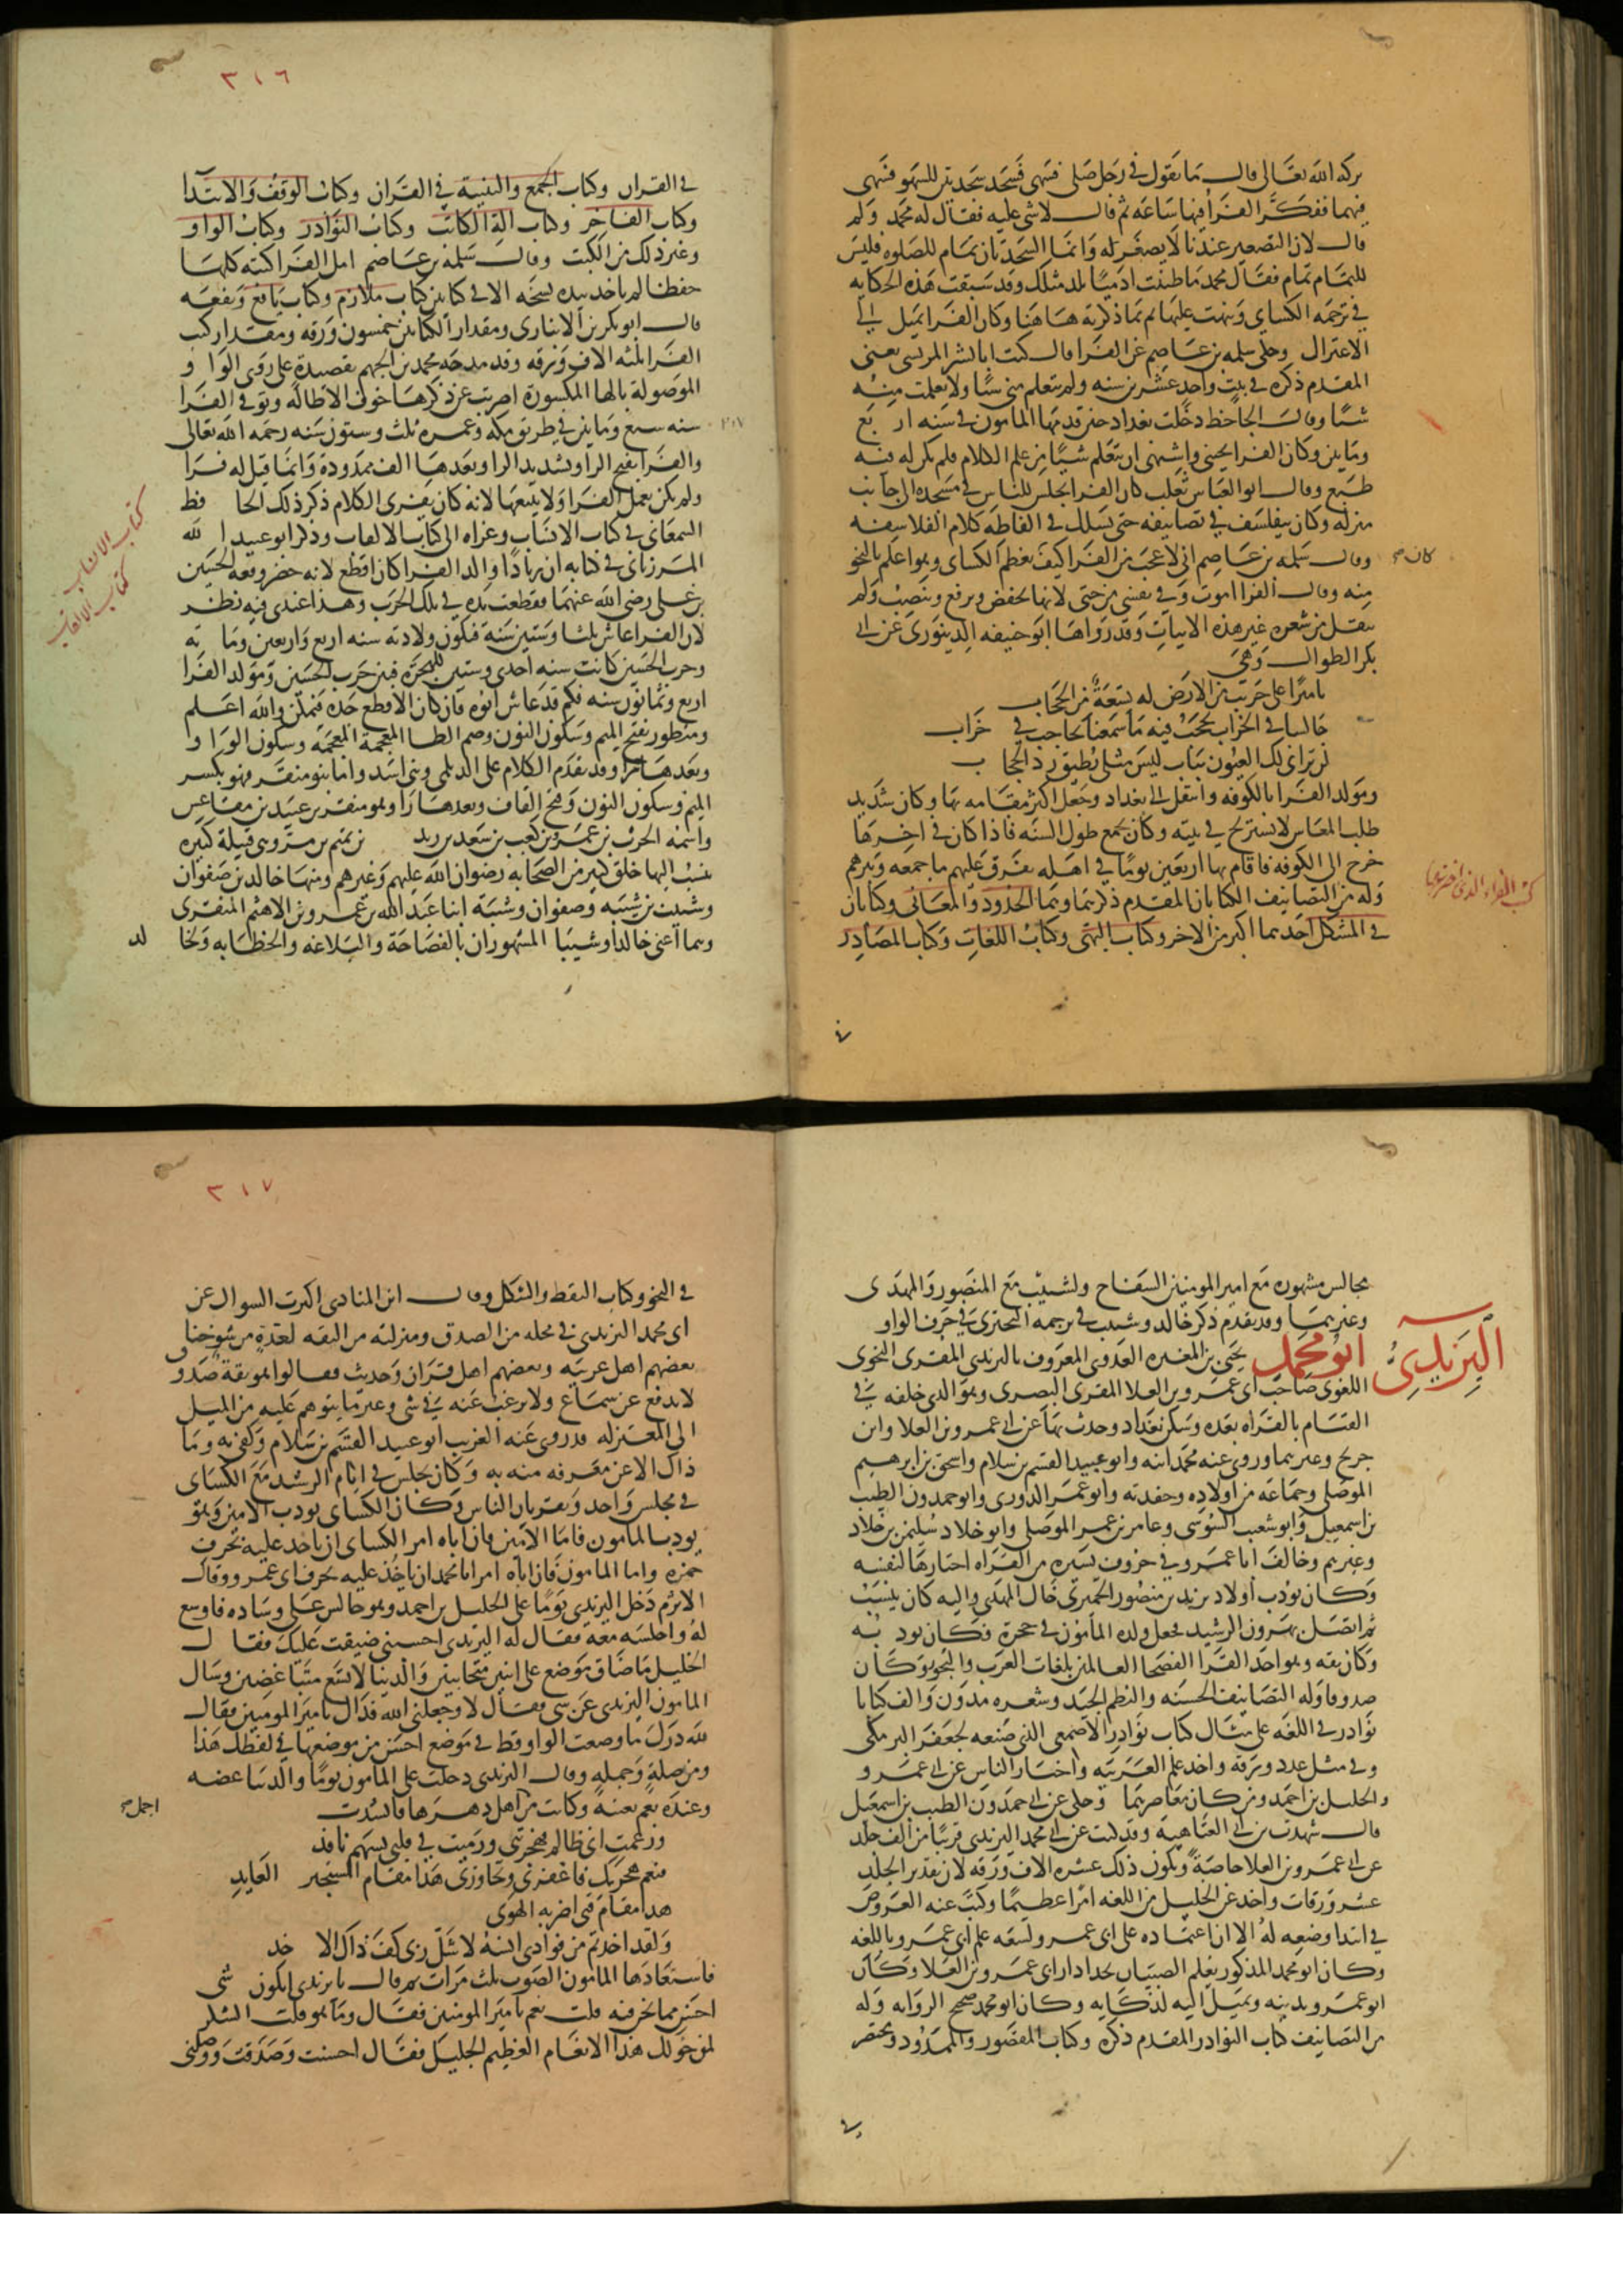 بركة الله تعالى قال ما تقول في رجل صلى فسهى فسجد سجدتين للسهو فسهى
فيهما ففكر الفرا فيها ساعة ثم قال لا شي عليه فقال له محمد ولم
قال لان التصغير عندنا لا يصغر له وانما السجدتان تمام للصلوة فليس
للتمام تمام فقال محمد ما ظننت ادميا يلد مثلك وقد سبقت هذه الحكاية
في ترجمة الكساي ونبهت عليها ثم بما ذكرته هاهنا وكان الفرا يميل الى
الاعتزال وحكى سلمه بن عاصم عن الفرا قال كنت ابا لبشر المريسى يعنى
المقدم ذكره في بيت واحد عشرين سنه ولم يتعلم منى شيا ولا تعلمت منه
شيا وقال الجاحظ دخلت بغداد حين قدمها المامون في سنه اربع
وماتين وكان الفرا يحبنى واشتهى ان يتعلم شيا من علم الكلام فلم يكن له فيه
طبع وقال ابو العباس ثعلب كان الفرا يجلس للناس في مسجده الى جانب
منزله وكان يتفلسف في تصانيفه حتى يسلك في الفاظه كلام الفلاسفه
وقال سلمه بن عاصم انى لاعجب من الفرا كيف يعظم الكساى وهو اعلم بالنحو
كان صح
منه وقال الفرا اموت وفي نفسى من حتى لانها تخفض وترفع وتنصب ولم
ينقل من شعره غير هذه الابيات وقد رواها ابو حنيفه الدينورى عن ابى
بكر الطوال وهى
يا اميرا على جريب من الارض له تسعة من الحجاب
جالسا في الخراب يحجب فيه ما سمعنا بحاجب في خراب
لن ترانى لك العيون بباب ليس مثلى يطيق رد الحجاب
ومولد الفرا بالكوفه وانتقل الى بغداد وجعل اكثر مقامه بها وكان شديد
طلب المعاس لا يستريح في بيته وكان يجمع طول السنه فاذا كان في اخرها
خرج الى الكوفه فاقام بها اربعين يوما في اهله يفرق عليهم ما جمعه ويبرهم
وله من التصانيف الكتابان المقدم ذكرهما وهما الحدود والمعانى وكتابان
في المشكل احدهما اكبر من الاخر وكتاب البهى وكتاب اللغات وكتاب المصادر
كتب الفراء الذى اخترعها
٣١٦
في القران وكتاب الجمع والتثنية في القران وكتاب الوقف والابتدا
وكتاب الفاخر وكتاب الة الكاتب وكتاب النوادر وكتاب الواو
وغير ذلك من الكتب وقال سلمه بن عاصم امل الفرا كتبه كلها
حفظا لم ياخذ بيده نسخه الا في كتابين كتاب ملازم وكتاب يافع ويفعه
قال ابو بكر بن الانبارى ومقدار الكتابين خمسون ورقه ومقدار كتب
الفرا ثلثه الاف ورقه وقد مدحه محمد بن الجهم بقصيدة على روى الواو
الموصولة بالها المكسورة اضربت عن ذكرها خوف الاطاله وتوفى الفرا
سنه سبع وماتين في طريق مكه وعمره ثلث وستون سنه رحمه الله تعالى
٢٠٧
والفرا بفتح الرا وتشديد الرا وبعدها الف ممدودة وانما قيل له فرا
ولم يكن يعمل الفرا ولا يبيعها لانه كان يفرى الكلام ذكر ذلك الحافظ
السمعانى في كتاب الانساب وعزاه الى كتاب الالقاب وذكر ابو عبيد الله
كتاب الانساب
كتاب الالقاب
المرزبانى في كتابه ان زيادا والد الفرا كان اقطع لانه حضر وقعة الحسين
بن على رضى الله عنهما فقطعت يده في تلك الحرب وهذا عندى فيه نظر
لان الفرا عاش ثلثا وستين سنة فتكون ولادته سنه اربع واربعين ومايه
وحرب الحسين كانت سنه احدى وستين للهجرة فبين حرب الحسين ومولد الفرا
اربع وثمانون سنه فكم قد عاش ابوه فان كان الاقطع جده فممكن والله اعلم
ومنظور بفتح الميم وسكون النون وضم الظا المعجمة المعجمة وسكون الواو
وبعدها را وقد تقدم الكلام على الديلمى وبنى اسد واما بنو منقر فهو بكسر
الميم وسكون النون وفتح القاف وبعدها را وهو منقر بن عبيد بن مقاعس
واسمه الحرث بن عمرو بن كعب بن سعد بن زيد بن تميم بن مر وهى قبيلة كبيره
ينسب اليها خلق كثير من الصحابه رضوان الله عليهم وغيرهم ومنها خالد بن صفوان
وشبيب بن شيبه وصفوان وشيبه ابنا عبد الله بن عمرو بن الاهتم المنقرى
وهما اعنى خالدا وشبيبا المشهوران بالفصاحة والبلاغه والخطابه ولخالد
مجالس مشهوره مع امير المومنين السفاح ولشبيب مع المنصور والمهدى
وغيرهما وقد تقدم ذكر خالد وشبيب في ترجمه البحترى في حرف الواو
اليزيدى
ابو محمد يحيى بن المغيره العدوى المعروف باليزيدى المقرى النحوى
اللغوى صاحب ابى عمرو بن العلا المقرى البصرى وهو الذى خلفه في
القيام بالقراه بعده وسكن بغداد وحدث بها عن ابى عمرو بن العلا وابن
جريج وغيرهما وروى عنه محمد ابنه وابو عبيد القسم بن سلام واسحق بن ابرهيم
الموصلى وجماعه من اولاده وحفدته وابو عمر الدورى وابو حمدون الطيب
بن اسمعيل وابو شعيب السوسى وعامر بن عمر الموصلى وابو خلاد سليمن بن خلاد
وغيرهم وخالف ابا عمرو في حروف يسيره من القراه اختارها لنفسه
وكان يودب اولاد يزيد بن منصور الحميرى خال المهدى واليه كان ينسب
ثم اتصل بهرون الرشيد فجعل ولده المامون في حجره فكان يودبه
وكان ثقه وهو احد القرا الفصحا العالمين بلغات العرب والنحو وكان
صدوقا وله التصانيف الحسنه والنظم الجيد وشعره مدون والف كتابا
نوادر في اللغه على مثال كتاب نوادر الاصمعى الذى صنعه لجعفر البرمكى
وفى مثل عدد ورقه واخذ علم العربيه واخبار الناس عن ابى عمرو
والخليل بن احمد ومن كان معاصرهما وحكى عن ابى حمدون الطيب بن اسمعيل
قال شهدت بن ابى العتاهية وقد كتب عن ابى محمد اليزيدى قريبا من الف جلد
عن ابى عمرو بن العلا خاصة ويكون ذلك عشره الاف ورقه لان تقدير الجلد
عشر ورقات واخذ عن الخليل من اللغه امرا عظيما وكتب عنه العروض
في ابتدا وضعه له الا ان اعتماده على ابى عمرو لسعه علم ابى عمرو باللغه
وكان ابو محمد المذكور يعلم الصبيان بحدا دار ابى عمرو بن العلا وكان
ابو عمرو يدينه ويميل اليه لذكايه وكان ابو محمد صحيح الروايه وله
من التصانيف كتاب النوادر المقدم ذكره وكتاب المقصور والممدود ومختصر
٣١٧
في النحو وكتاب النقط والشكل وقال ابن المنادى اكثرت السوال عن
ابى محمد اليزيدى في محله من الصدق ومنزلته من الثقه لعدة من شيوخنا
بعضهم اهل عربيه وبعضهم اهل قران وحديث فقالوا هو ثقة صدوق
لا يدفع عن سماع ولا يرغب عنه في شى وغير ما يتوهم عليه من الميل
الى المعتزله قد روى عنه الغريب ابو عبيد القسم بن سلام وكفى به وما
ذاك الا عن معرفه منه به وكان يجلس في ايام الرشيد مع الكساى
في مجلس واحد ويقريان الناس وكان الكساى يودب الامين وهو
يودب المامون فاما الامين فان اباه امر الكساى ان ياخذ عليه بحرف
حمزه واما المامون فان اباه امر ابا محمد ان ياخذ عليه بحرف ابى عمرو وقال
الاثرم دخل اليزيدى يوما على الخليل بن احمد وهو جالس على وساده فاوسع
له واجلسه معه فقال له اليزيدى احسبنى ضيقت عليك فقال
الخليل ما ضاق موضع على اثنين متحابين والدنيا لا تسع متباغضين وسال
المامون اليزيدى عن شى فقال لا وجعلنى الله فداك يا امير المومنين فقال
لله درك ما وضعت الواو قط في موضع احسن من موضعها في لفظك هذا
ووصله وحمله وقال اليزيدى دخلت على المامون يوما والدنيا غضه
وعنده نعم تغنيه وكانت من اهل دهرها فانشدت
اجمل صح
وزعمت انى ظالم فهجرتنى ورميت في قلبى بسهم نافذ
فنعم هجرتك فاغفرى وتجاوزى هذا مقام المستجير العايذ
هذا مقام فتى اضر به الهوى
ولقد اخذتم من فوادى انسه لا شل ربى كف ذاك الاخذ
فاستعادها المامون الصوت ثلث مرات ثم قال يا يزيدى ايكون شى
احسن مما نحن فيه قلت نعم يا امير المومنين فقال وما هو قلت الشكر
لمن خولك هذا الانعام العظيم الجليل فقال احسنت وصدقت ووصلنى